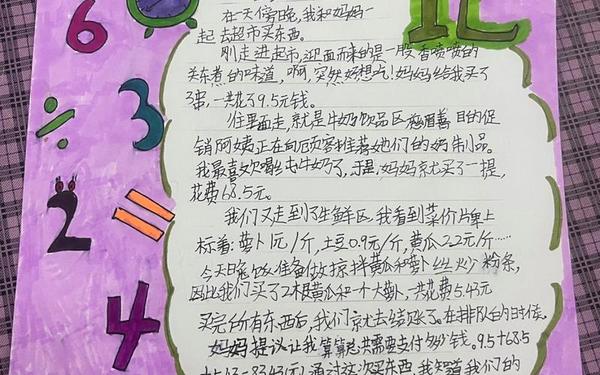 6
÷
3
2
=
4
记
在一天傍晚,我和妈妈一
起去超市买东西。
刚走进超市,迎面而来的是一股香喷喷的
关东煮的味道,啊,突然好想吃!妈妈给我买了
3串,一共花了9.5元钱。
往里面走,就是牛奶饮品区
销阿姨正在向顾客推荐她们的奶制品。
我最喜欢喝纯牛奶了,于是,妈妈就买了一提,
花费68.5元。
我们又走到了生鲜区,我看到菜价片单上
标着:萝卜1元/斤,土豆0.9元/斤,黄瓜2.2元/斤……
今天晚饭准备做凉拌黄瓜和萝卜丝炒粉条,
因此我们买了2根黄瓜和一个大萝卜,共花费5.43元
买完所有东西后,我们就去结账了。在排队的时候,
妈妈提议让我算算总共需要支付多少钱。9.5+68.5
通过这次买东西,我知道我们的